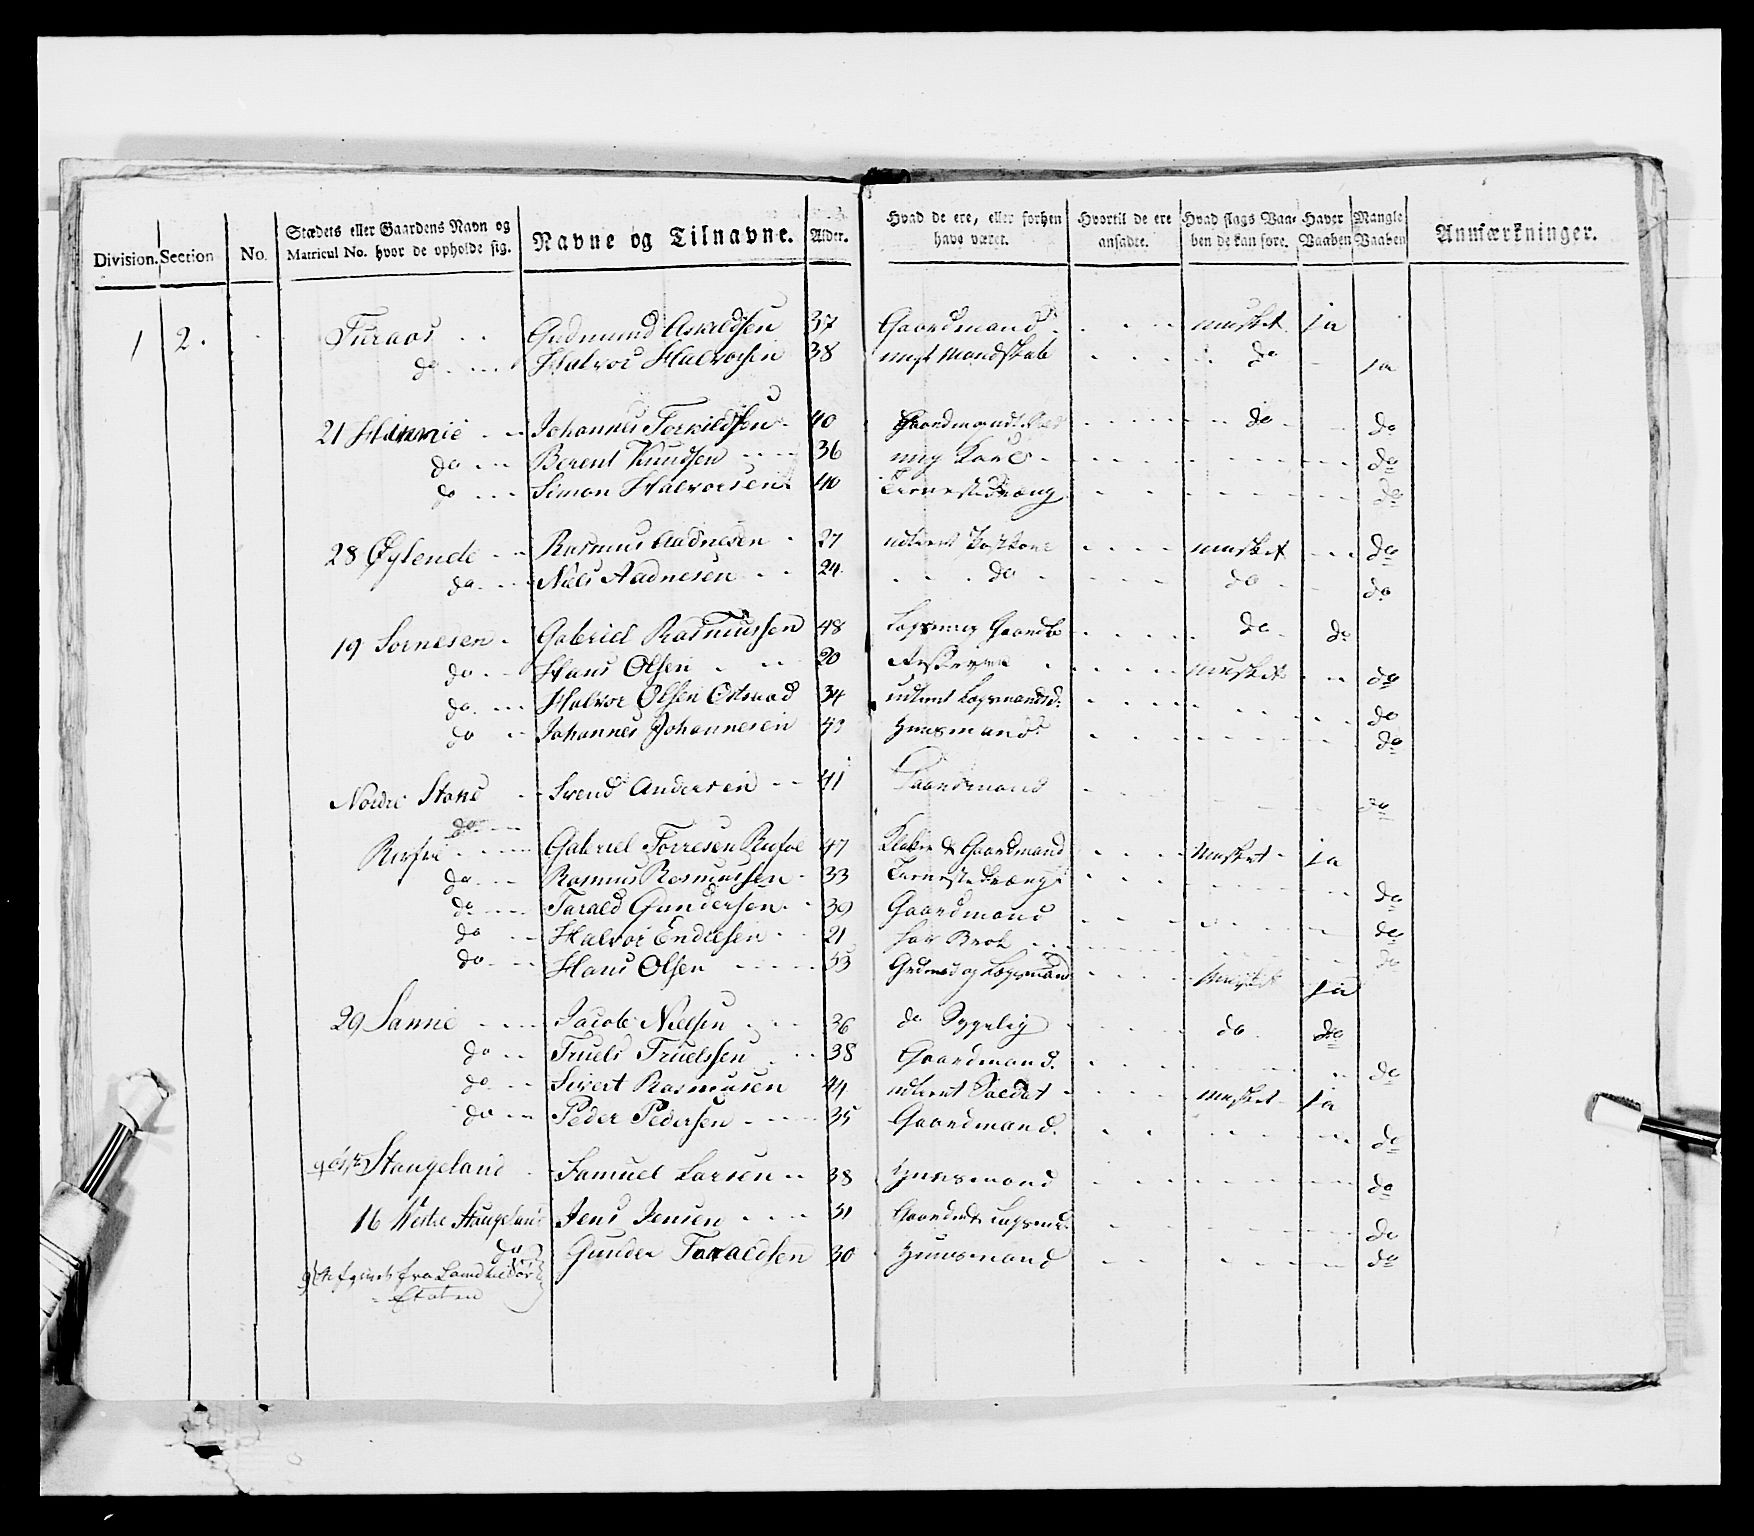 Division. Section No. Stædets eller Gaardens Navn og Matricul No. hvor de opholde sig. Navne og Tilnavne. Alder. Hvad de ere, eller forhen have været. Hvortil de ere ansadte. Hvad slags Vaaben de kan føre. Haver Vaaben Mangle Vaaben Anmærkninger.
1 2. Furaas Gudmund Asveldsen 37 Gaardmand musket ja
do Halvor Halvorsen 38 Mandskab do ja
21 Hinnie Johannes Torkildsen 40 do do
do Berent Knudsen 36 ung Karl do
do Simon Halvorsen 40 Tienestedræng do
28 Øylende Rasmus Aadnesen 27 udtient musket do
do Niels Aadnesen 24 do do do
19 Sørnesen Gabriel Rasmussen 48 do do
do Hans Olsen 20 musket do
do Halvor Olsen 34 udtient do
do Johannes Johannesen Huusmand do
Nordre Stane Svend Andersen 41 Gaardmand do
do
Gabriel Torresen 47 & Gaardmand Musket ja
do Rasmus Rasmussen 33 Tienestedræng do
do Tarald Gundersen 39 Gaardmand do
do Halvor Endresen 21 har Brok do
do Hans Olsen og Musket ja
29 Sannie Jacob Nielsen 36 do Sygelig do do
do Truels Truelssen 38 Gaardmand do
do Sivert Rasmusen 44 udtient Soldat musket ja
do Peder Pedersen 35 Gaardmand do
Stangeland Samuel Larsen 38 Huusmand do
16 Vestre Stangeland Jens Jensen 31 do
do Gunder Taraldsen 30 Huusmand do
fra
Etaten